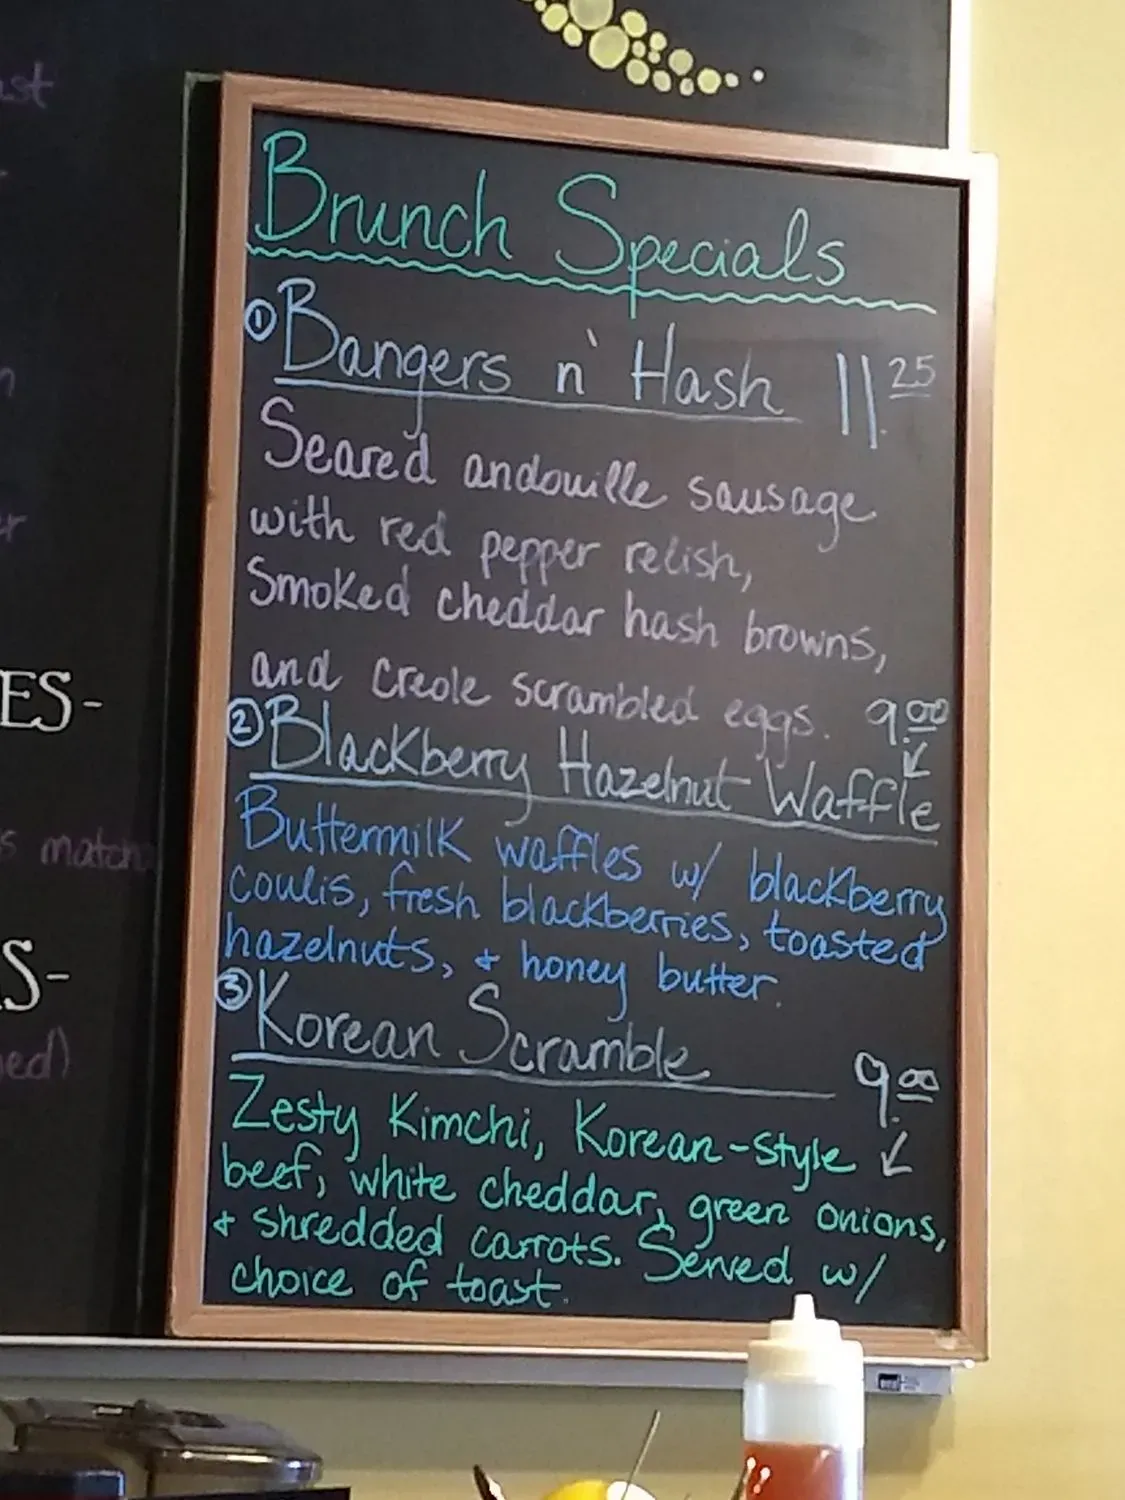 Brunch Specials
① Bangers n' Hash 11.25
Seared andouille sausage
with red pepper relish,
Smoked cheddar hash browns,
and creole scrambled eggs.
9.00
② Blackberry Hazelnut Waffle
Buttermilk waffles w/ blackberry
coulis, fresh blackberries, toasted
hazelnuts, + honey butter.
③ Korean Scramble 9.00
Zesty Kimchi, Korean-style
beef, white cheddar, green onions,
+ shredded carrots. Served w/
choice of toast.
ES-
S-